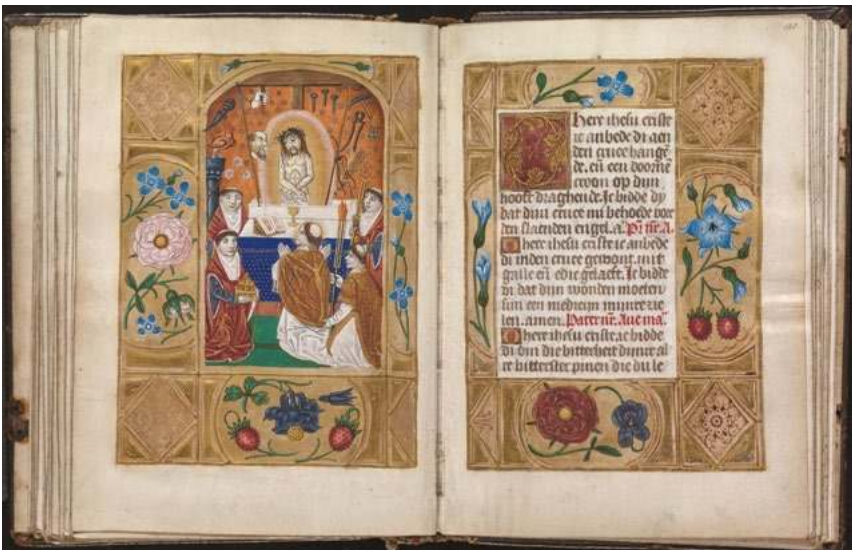 here ihesu criste
ic anbede di aen
den cruce hangē
de. eñ een doorne
croon op dijn
hooft draghende. Ic bidde dy
dat dijn cruce mi behoede voor
den slaenden engel. a. Pr̄ nr̄. a.
O here ihesu criste ic anbede
di in den cruce gewont. mit
galle eñ edic gelaeft. Ic bidde
di dat dijn wonden moeten
sijn een medicijn mijnre zie
len. amen. Pater nr̄. Aue ma.
O here ihesu criste, ic bidde
di om die bitterheit dijnre al
re bitterster pinen die du le